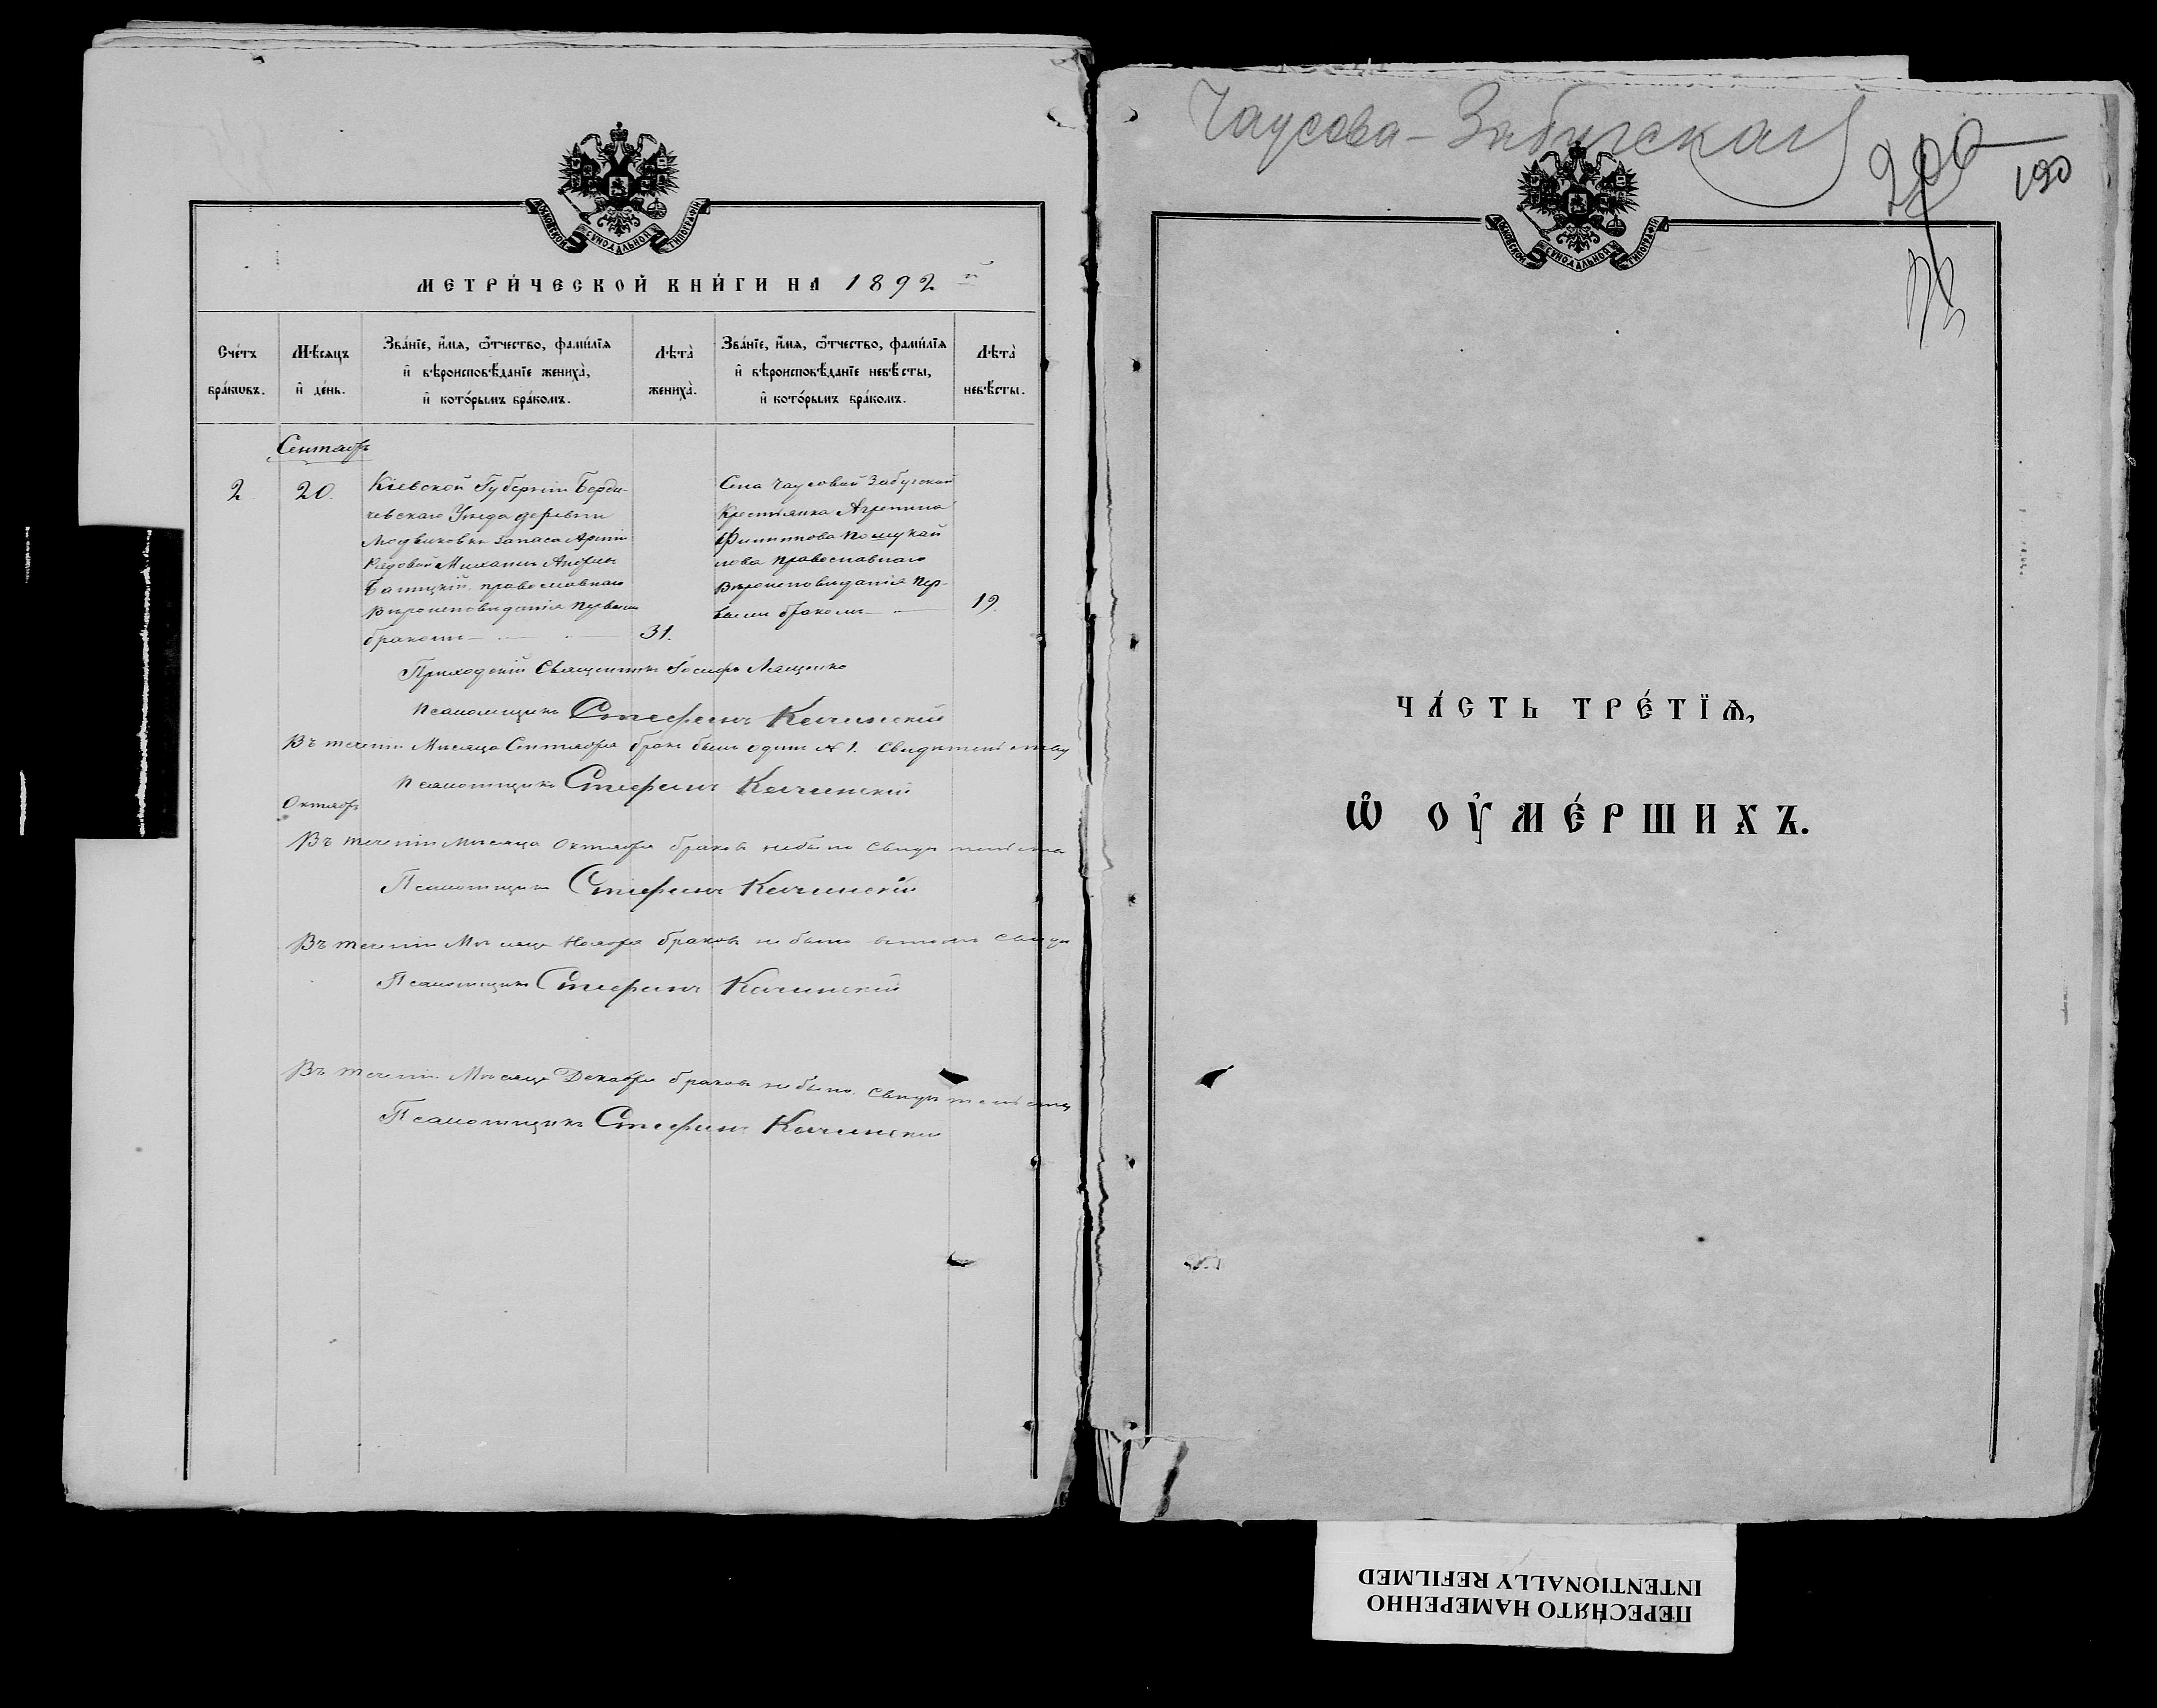 МОСКОВСКОЙ СΥНОДАЛЬНОЙ ТИПОГРАФІИ
МЕТРИ́ЧЕСКОЙ КНИ́ГИ НА 1892 й
Сче́тъ бра́кωвъ.
Мѣ́сяцъ и҆ де́нь.
Зва́нїе, и҆́мя, ѻ҆́тчество, фами́лїя
и҆ вѣроисповѣ́данїе жениха̀,
и҆ кото́рымъ бра́комъ.
Лѣта̀ жениха̀.
Зва́нїе, и҆́мя, ѻ҆́тчество, фами́лїя
и҆ вѣроисповѣ́данїе невѣ́сты,
и҆ кото́рымъ бра́комъ.
Лѣта̀ невѣ́сты.
Сентябрь
2.
20.
Кіевской Губерніи Берди-
чевскаго Уѣзда деревни
запаса Арміи
Рядовой Михаилъ
православнаго
Вѣроисповѣданія первымъ
бракомъ
31.
Села Чаусовой Забугской
Крестьянка Агрипина
Филиппова
православнаго
Вѣроисповѣданія пер-
вымъ бракомъ
19.
Приходскій Священникъ Іосифъ Лященко
Псаломщикъ Стефанъ Качинскій
Въ теченіи Мѣсяца Сентября бракъ былъ одинъ № 1. Свидѣтельству
Псаломщикъ Стефанъ Качинскій
Октябрь
Въ теченіи мѣсяца Октября браковъ небыло
Псаломщикъ Стефанъ Качинскій
Въ теченіи Мѣсяца Ноября браковъ не было
Псаломщикъ Стефанъ Качинскій
Въ теченіи Мѣсяца Декабря браковъ небыло.
Псаломщикъ Стефанъ Качинскій
Чаусова-Забугская
200
190
МОСКОВСКОЙ СΥНОДАЛЬНОЙ ТИПОГРАФІИ
ЧА́СТЬ ТРЕ́ТЇѦ,
Ѽ ОУ҆МЕ́РШИХЪ.
ПЕРЕСНЯТО НАМЕРЕННО
INTENTIONALLY REFILMED